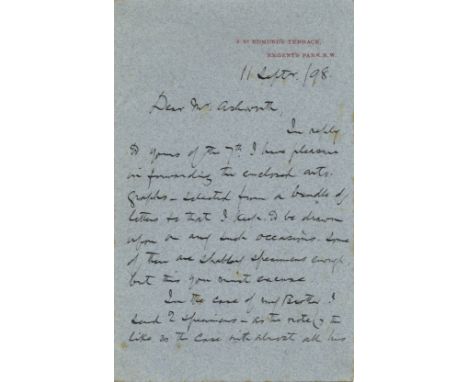 3 St EDMUND'S TERRACE,
REGENT'S PARK. N.W.
11 Septr. /98.
Dear Mr. Ashworth,
In reply
to yours of the 7th. I have pleasure
in forwarding the enclosed auto-
graphs – selected from a bundle of
letters to that I keep to be drawn
upon on any such occasions. Some
of them are shabby specimens enough,
but this you must excuse
In the case of my Brother I
send 2 specimens – as the note
like is the case with almost all his